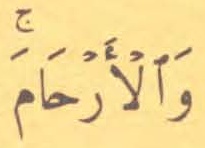 وَٱلۡأَرۡحَامَۚ